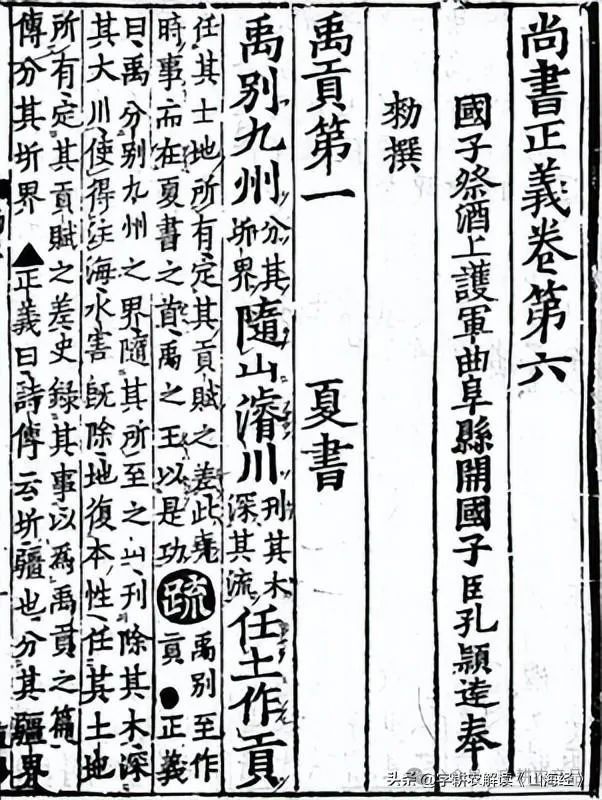 尚書正義卷第六
國子祭酒上護軍曲阜縣開國子臣孔穎達奉
勑撰
禹貢第一 夏書
禹別九州 分其圻界 隨山濬川 刊其木深其流 任土作貢
任其土地所有定其貢賦之差此堯
時事而在夏書之首禹之王以是功 疏 禹別至作貢●正義
曰禹分別九州之界隨其所至之山刊除其木深
其大川使得注海水害旣除地復本性任其土地
所有定其貢賦之差史録其事以為禹貢之篇
傳分其圻界▲正義曰詩傳云圻疆也分其疆界
头条 @字耕农解读《山海经》